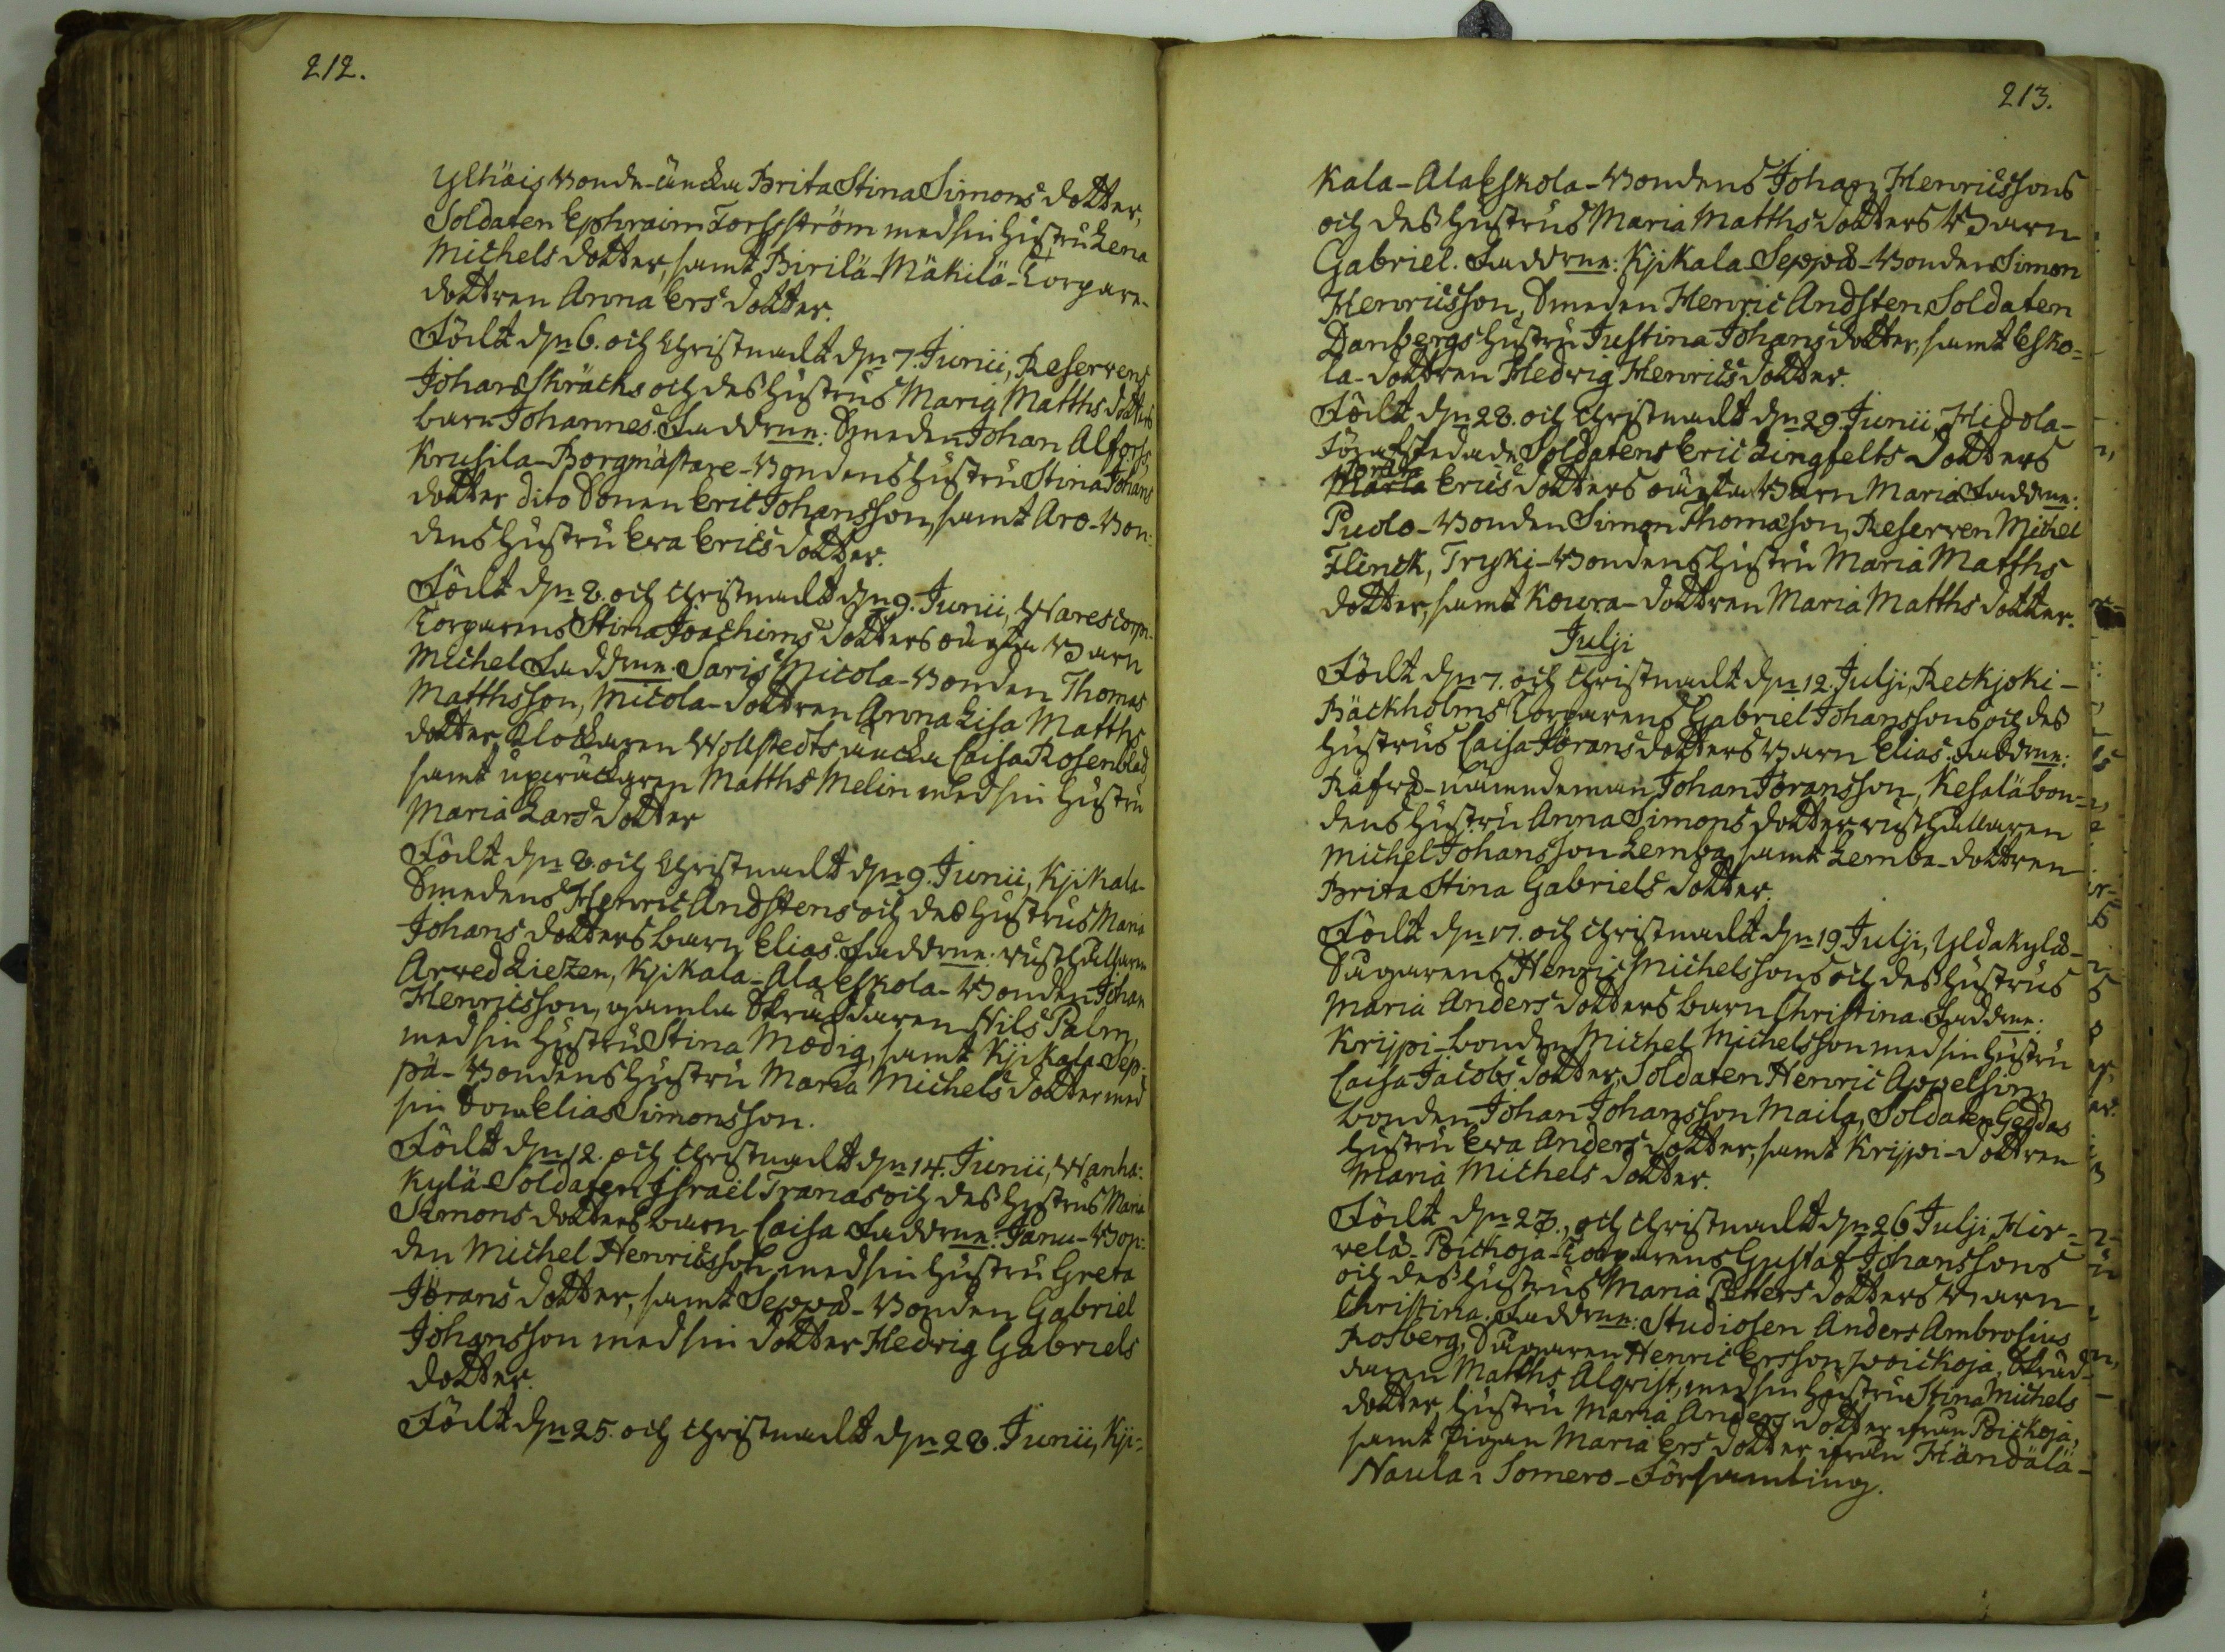 212.
Ylhäis Bonde-änckia Brita Stina Simons dotter,
Soldaten Ephraim Forsström med sin hustru Lena
Michels dotter, samt Pirilä-Mäkilä-Torpare-
dottren Anna Ers dotter.
Födt d:n 6. och Christnadt d:n 7. Junii, Reservens
Johan Skräcks och des hustrus Maria Matths dotters
barn Johannes. Faddrne: Smeden Johan Alfors,
Krusila-Borgmästare-Bondens hustru Stina Johans
dotter dito Sonen Eric Johansson, samt Aro-Bon-
dens hustru Eva Erics dotter.
Födt d:n 8. och Christnadt d:n 9. Junii,
Torparens Stina Joachims dotters oägta Barn
Michel Faddrne. Saris Nicola-Bonden Thomas
Matthsson, Nicola-dottren Anna Lisa Matths
dotter Klockaren Wollstedts äncka Caisa Rosenblad
samt upwäckaren Matths Melin med sin hustru
Maria Lars dotter
Födt d:n 8. och Christnadt d:n 9. Junii, Kjikala-
Smedens Henric Andstens och des hustrus Maria
Johans dotters barn Elias. Faddrne: rusthållaren
Arved Liezen, Kjikala-Ala Eskola-Bonden Johan
Henricsson, gamla Skräddaren Nils Palm,
med sin hustru Stina Modig, samt Kjikala Sep-
pä-Bondens hustru Maria Michels dotter med
sin Son Elias Simonsson.
Födt d:n 12. och Christnadt d:n 14. Junii, Wanha-
kylä-Soldaten Israel Tranas och des hustrus Maria
Simons dotters barn Caisa Faddrne: Janu-Bon-
den Michel Henricsson med sin hustru Greta
Jörans dotter, samt Seppä-Bonden Gabriel
Johansson med sin dotter Hedvig Gabriels
dotter.
Födt d:n 25. och Christnadt d:n 28. Junii, Kji-
213.
kala-Ala Eskola-Bondens Johan Henricssons
och des hustrus Maria Matths dotters Barn
Gabriel. Faddrne: Kjikala Seppä-Bonden Simon
Henricsson, Smeden Henric Andsten, Soldaten
Danbergs hustru Justina Johans dotter, samt Esko-
la-dottren Hedvig Henrics dotter.
Födt d:n 28. och Christnadt d:n 29. Junii, Hidola-
Soldatens Eric Lingfelts dotters
Maria Erics dotters oägta Barn Maria Faddrne:
Puolo-Bonden Simon Thomasson, Reserven Michel
Flinck, Tryski-Bondens hustru Maria Matths
dotter, samt Koura-dottren Maria Matths dotter.
Julji
Födt d:n 7. och Christnadt d:n 12. Julji, Reckjoki-
Bäckholms Torparens Gabriel Johanssons och des
hustrus Caisa Jörans dotters Barn Elias Faddrne:
Räfvä-nämndeman Johan Jöransson, Kesalä bon-
dens hustru Anna Simons dotter rusthållaren
Michel Johansson Lemba, samt Lemba-dottren
Brita Stina Gabriels dotter.
Födt d:n 17. och Christnadt d:n 19. Julji, Yldakylä-
Sågarens Henric Michelssons och des hustrus
Maria Anders dotters barn Christina. Faddrne:
Krijpi-bonden Michel Michelsson med sin hustru
Caisa Jacobs dotter, Soldaten Henric Appelsin,
bonden Johan Johansson Maila, Soldaten Geddas
hustru Eva Anders dotter, samt Krijpi-dottren
Maria Michels dotter.
Födt d:n 23., och Christnadt d:n 26 Julji, Hir-
velä-Poickoja-Torparens Gustaf Johanssons
och des hustrus Maria Petters dotters Barn
Christina: Faddrne: Studiosen Anders Ambrosius
Rosberg, Sågaren Henric Ersson Poickoja, Skräd-
daren Matths Alqvist, med sin hustru Stina Michels
dotter, hustru Maria Anders dotter från Poickoja,
samt Pigan Maria Ers dotter från Händälä-
Naula i Somero-Församling.